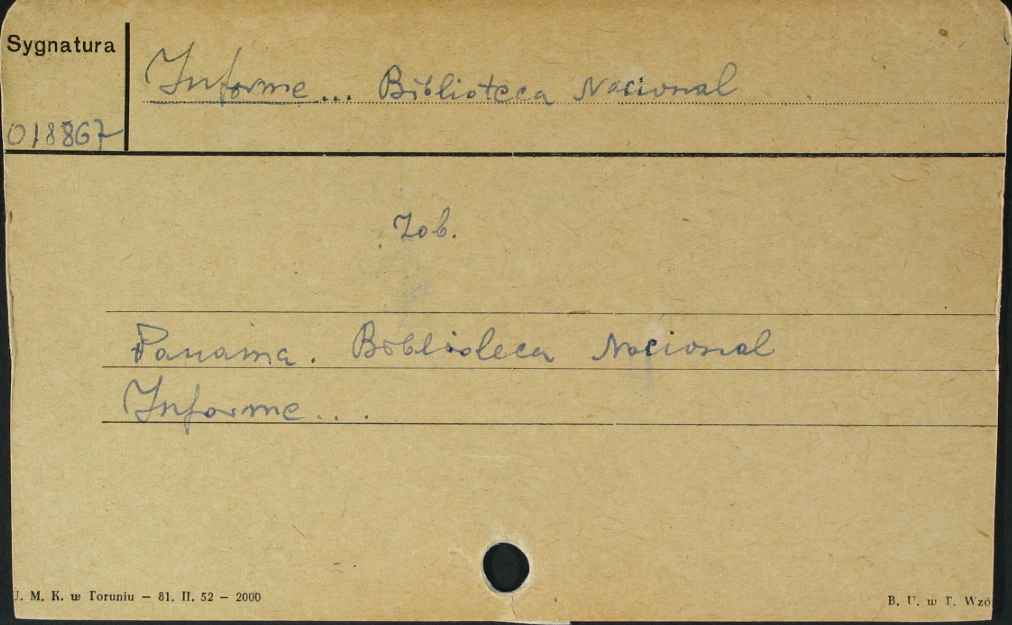 Sygnatura
Informe... Biblioteca Nacional
018867
Zob.
Panama. Biblioteca Nacional
Informe...
U. M. K. w Toruniu — 81. II. 52 — 2000
B. U. w T. Wzó